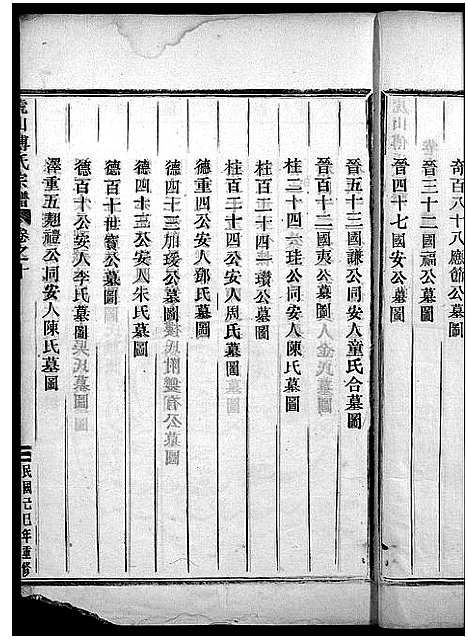 奇百八十八應節公墓圖
晉三十二國福公墓圖
晉四十七國安公墓圖
晉五十三國謙公同安人童氏合墓圖
晉百十二國夷公墓圖
桂二十四 珪公同安人陳氏墓圖
桂二十四 瓚公墓圖
桂百二十四公安人周氏墓圖
德重四公安人鄧氏墓圖
德四十三 公墓圖
德四十 公安人朱氏墓圖
德百十世寶公墓圖
德百十公安人李氏墓圖
澤重五 禮公同安人陳氏墓圖
虎山傅氏宗譜 卷之十
民國 巳年重修